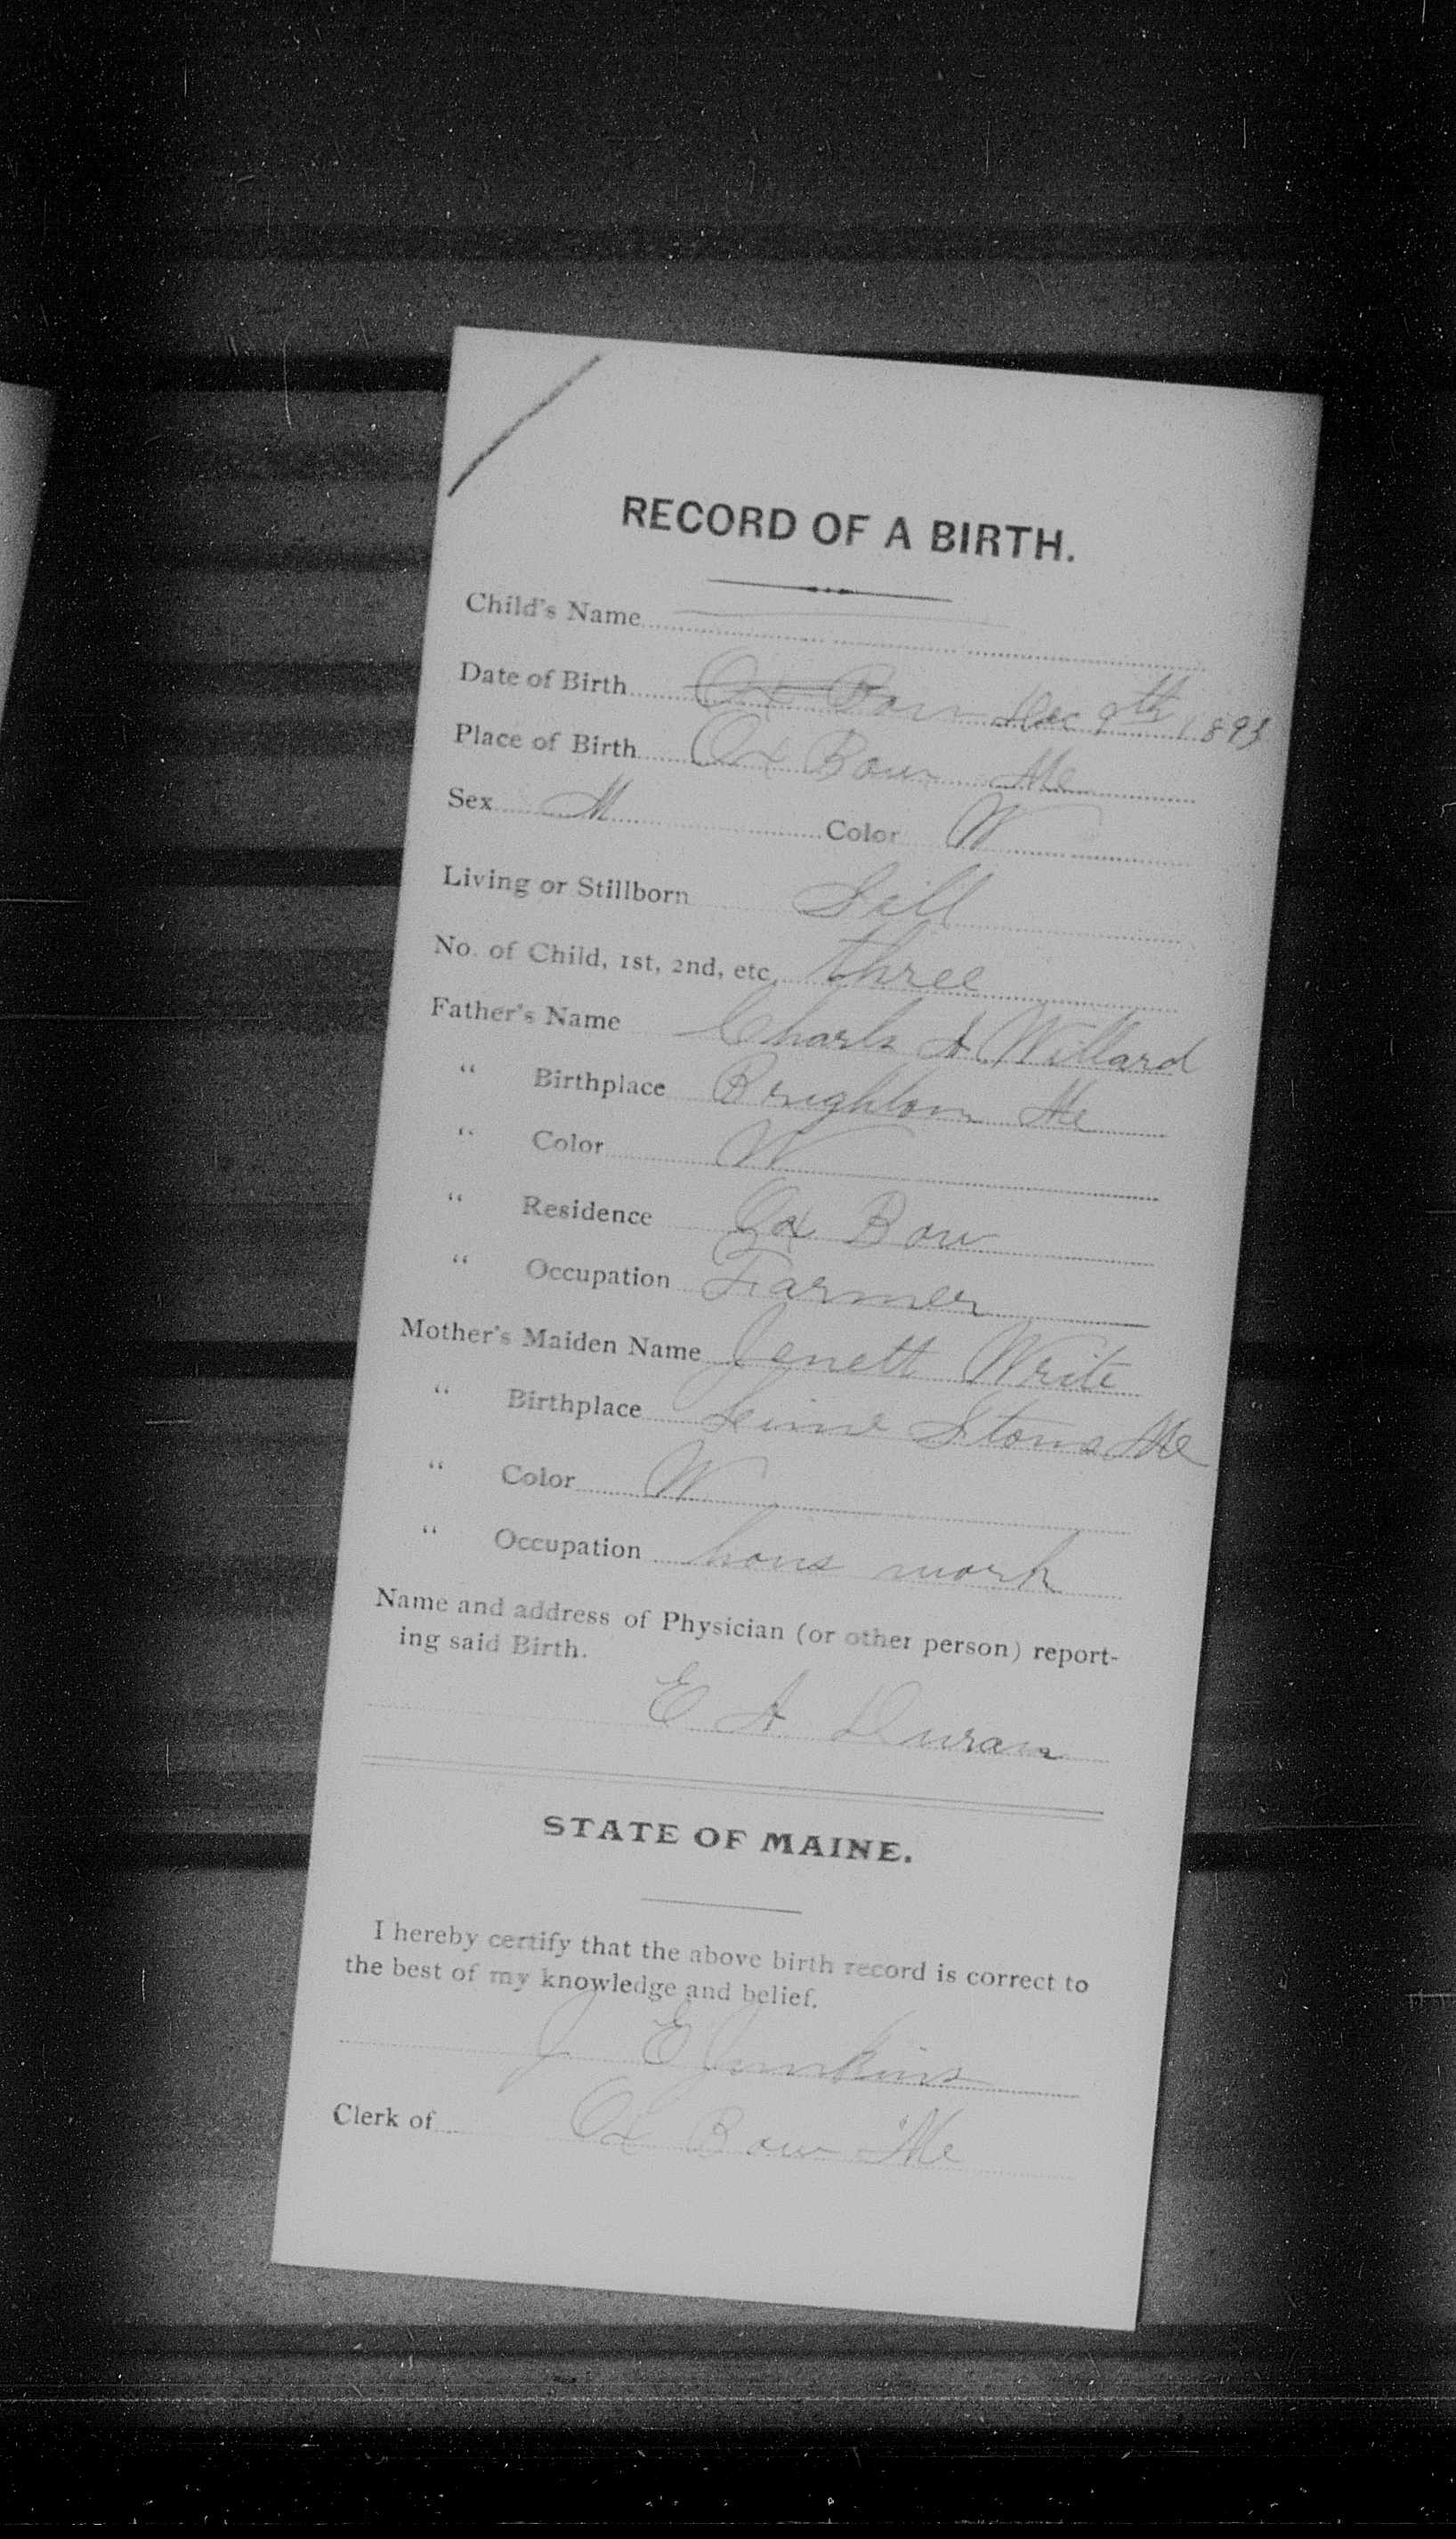 RECORD OF A BIRTH.
Child's Name
Date of Birth Ox Bow Dec 9th 1893
Place of Birth Ox Bow Me
Sex M Color W
Living or Stillborn Still
No. of Child, 1st, 2nd, etc. three
Father's Name Charls A Willard
" Birthplace Brighton Me
" Color W
" Residence Ox Bow
" Occupation Farmer
Mother's Maiden Name Jenett Write
" Birthplace Lime Stone Me
" Color W
" Occupation hous work
Name and address of Physician (or other person) report-
ing said Birth.
E A Duran
STATE OF MAINE.
I hereby certify that the above birth record is correct to
the best of my knowledge and belief.
J E Junkins
Clerk of Ox Bow Me